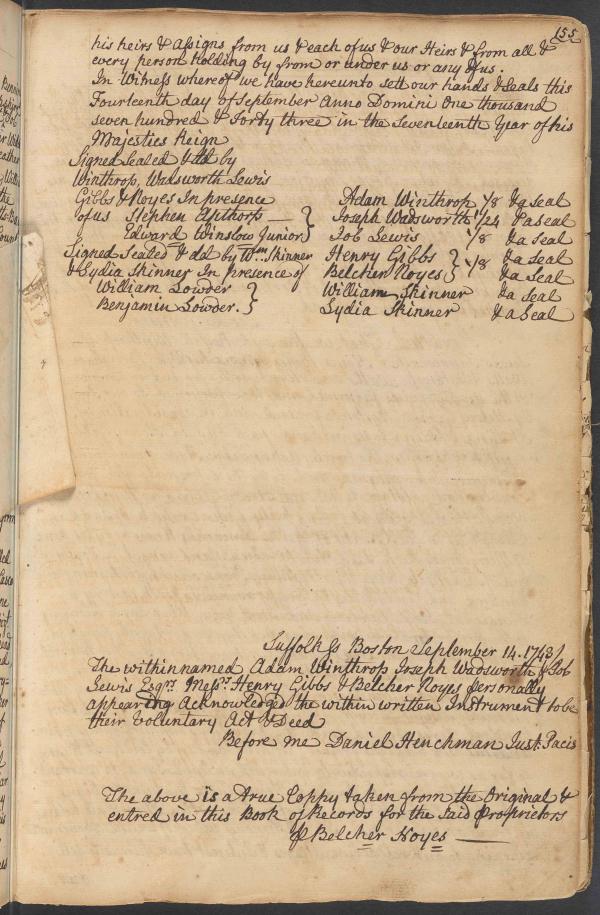 155
his heirs & Assigns from us & each of us & our Heirs & from all &
every person holding by from or under us or any of us.
In Witness whereof we have hereunto sett our hands & Seals this
Fourteenth day of September Anno Domini One thousand
seven hundred & Forty three in the Seventeenth Year of his
Majesties Reign
Signed Sealed & dd by
Winthrop, Wadsworth Lewis
Gibbs & Noyes In presence
of us Stephen Apthorp
Edward Winslow Junior
Signed Sealed & dd by Wm. Skinner
& Lydia Skinner In presence of
William Lowder
Benjamin Lowder.
Adam Winthrop 1/8 & a Seal
Joseph Wadsworth 1/24 & a Seal
Job Lewis 1/8 & a Seal
Henry Gibbs & a Seal
Belcher Noyes } 1/8 & a Seal
William Skinner & a Seal
Lydia Skinner & a Seal
Suffolk Ss Boston September 14. 1743/
The within named Adam Winthrop Joseph Wadsworth & Job
Lewis Esqrs. Messrs. Henry Gibbs & Belcher Noyes personally
appearing Acknowledged the within written Instrument to be
their Voluntary Act & Deed
Before me Daniel Henchman Just. Pacis
The above is a true Coppy taken from the Original &
entred in this Book of Records for the Said Proprietors
P Belcher Noyes